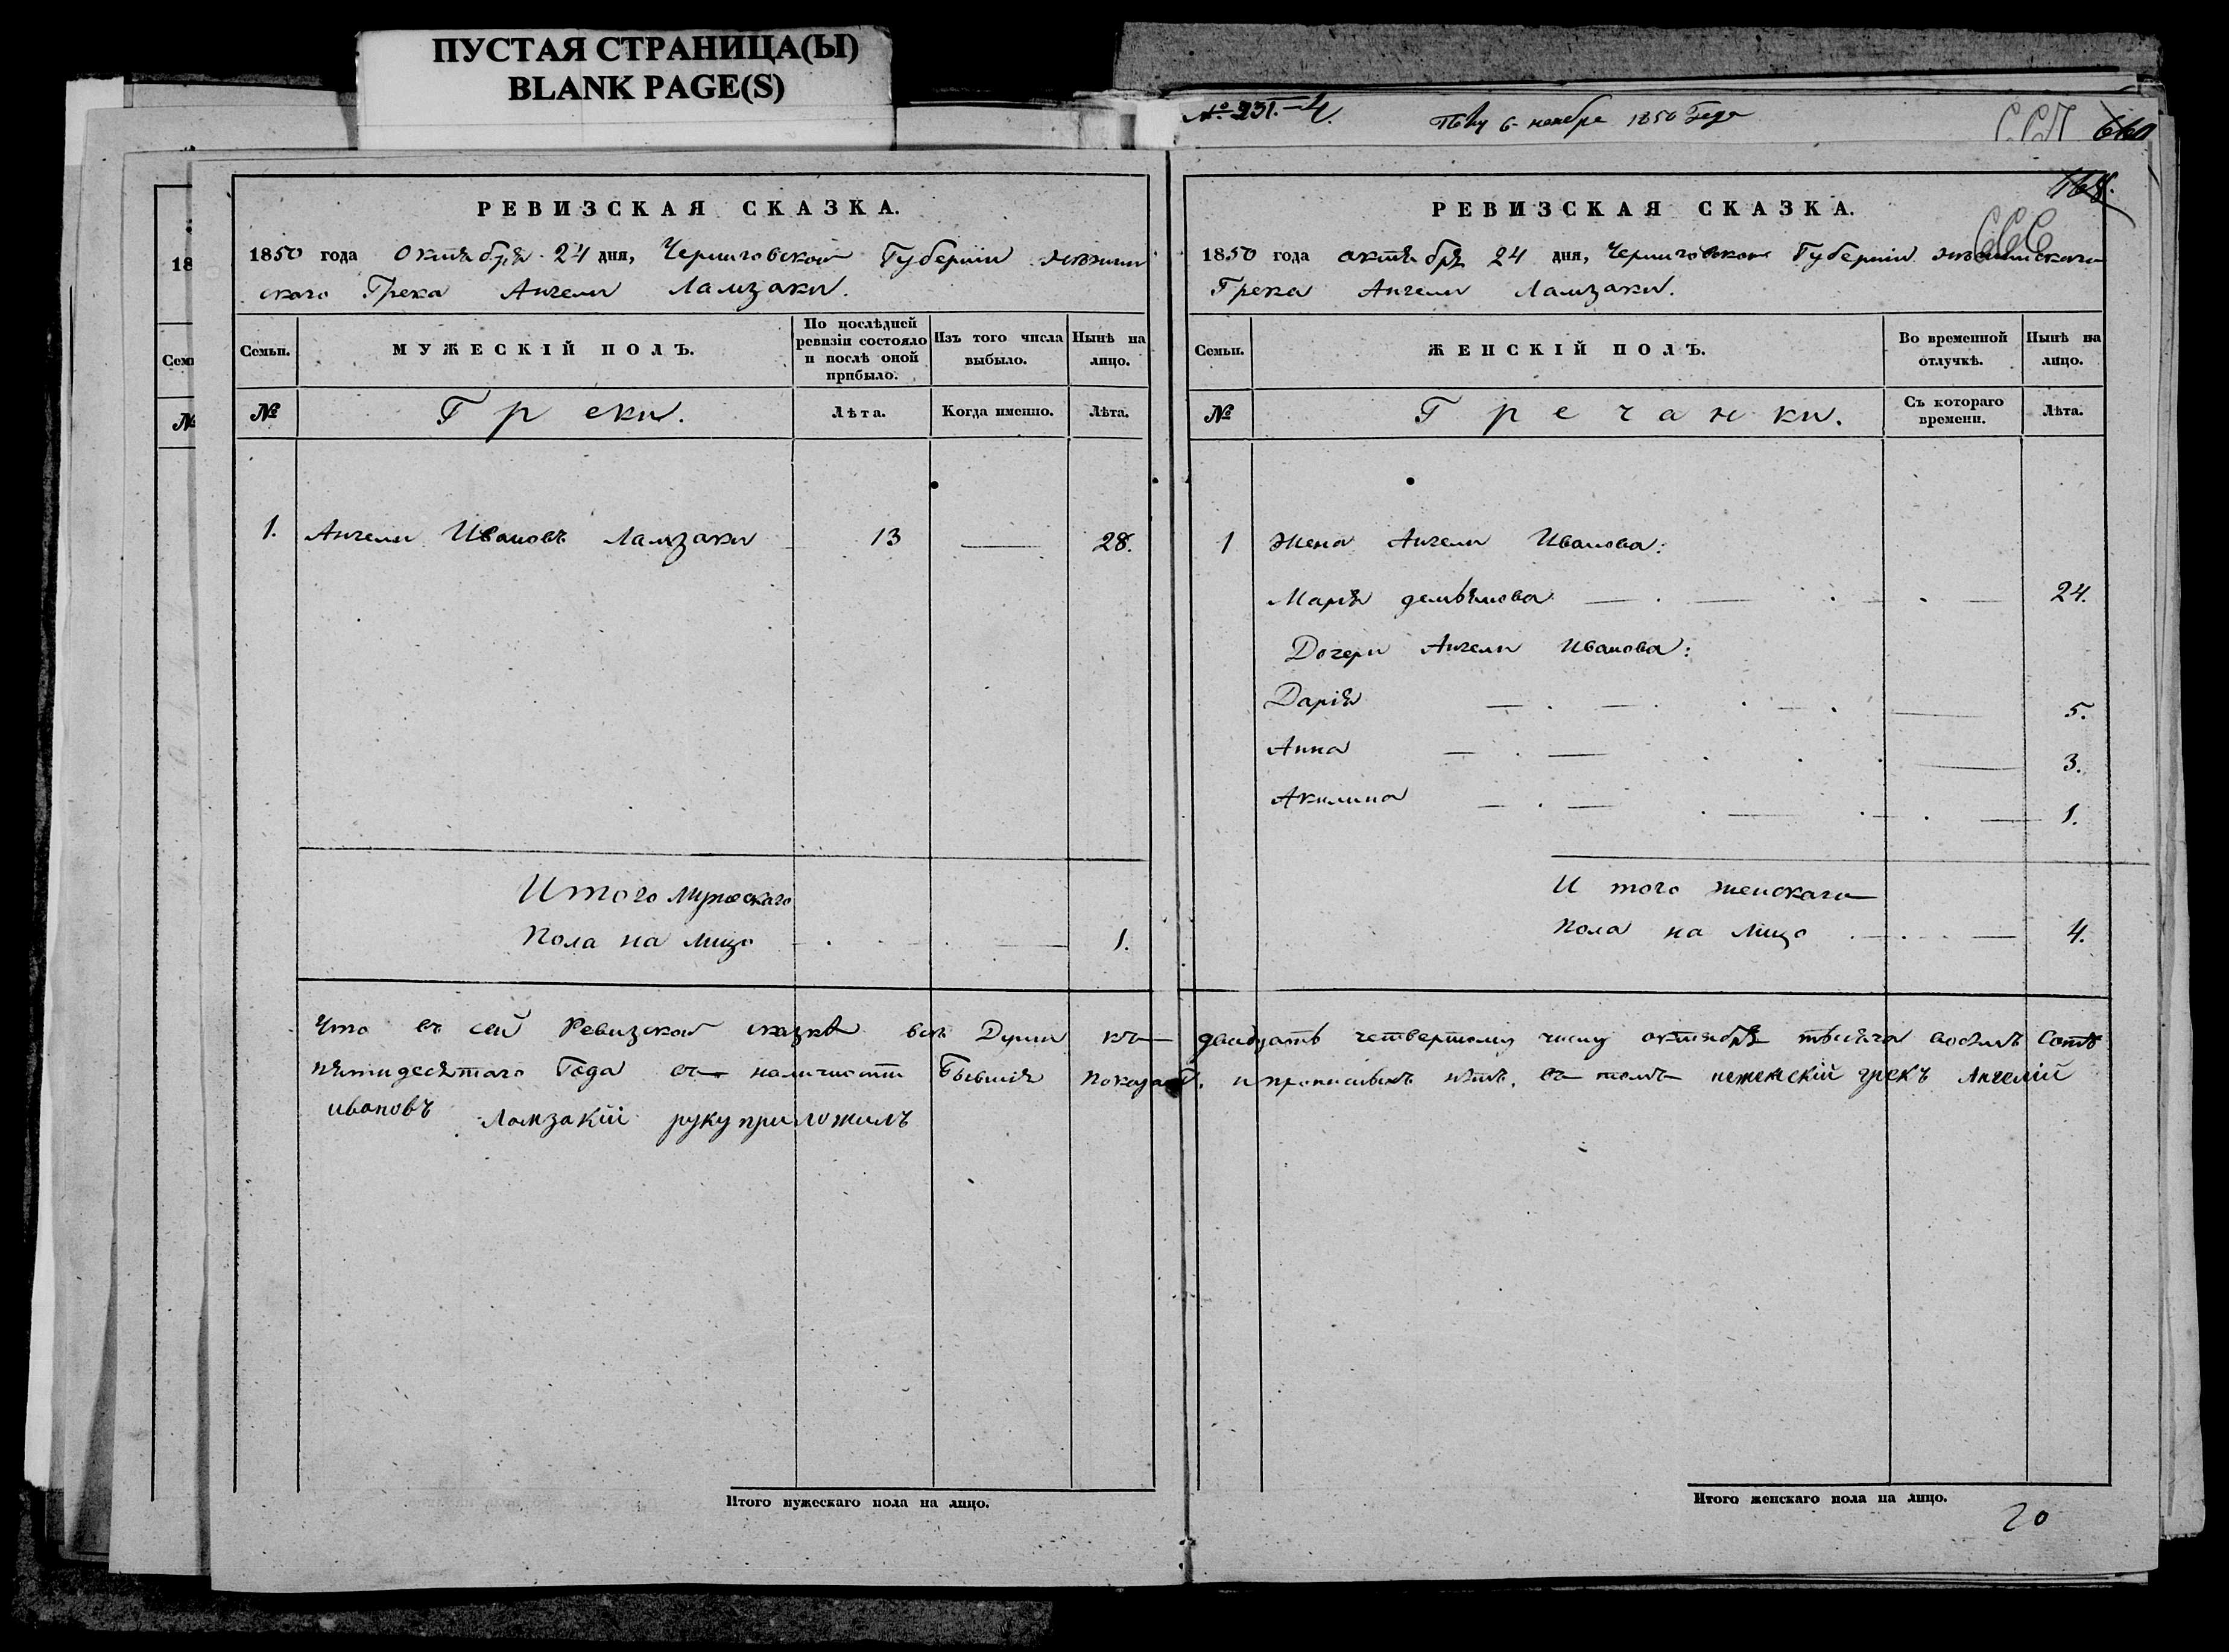 ПУСТАЯ СТРАНИЦА(Ы)
BLANK PAGE(S)
№ 231.
6 ноября 1850 года
660
РЕВИЗСКАЯ СКАЗКА.
1850 года октября 24 дня, Черниговской Губернии нѣжин
скаго Грека Ангели Ламзаки.
Семьи.
МУЖЕСКІЙ ПОЛЪ.
По послѣдней ревизіи состояло и послѣ оной прибыло.
Изъ того числа выбыло.
Нынѣ на лицо.
№
Греки.
Лѣта.
Когда именно.
Лѣта.
1. Ангели Ивановъ Ламзаки 13 — 28.
Итого мужескаго
пола на лицо 1.
РЕВИЗСКАЯ СКАЗКА.
1850 года октября 24 дня, Черниговской Губерніи нѣжинскаго
Грека Ангели Ламзаки.
Семьи.
ЖЕНСКІЙ ПОЛЪ.
Во временной отлучкѣ.
Нынѣ на лицо.
№
Гречанки.
Съ котораго времени.
Лѣта.
1 Жена Ангели Иванова:
Марія демьянова 24.
Дочери Ангели Иванова:
Дарія 5.
Анна 3.
Акилина 1.
И того женскаго
пола на лицо 4.
Что въ сей Ревизской сказкѣ всѣ Души къ двадцать четвертому числу октября тысяча восемь Сотъ
пятидесятаго Года въ наличности Бывшія и прописныхъ нѣтъ, въ томъ нежекскій грекъ Ангелій
ивановъ Ламзакій руку приложилъ
Итого мужескаго пола на лицо.
Итого женскаго пола на лицо.
20
18
Сем
№